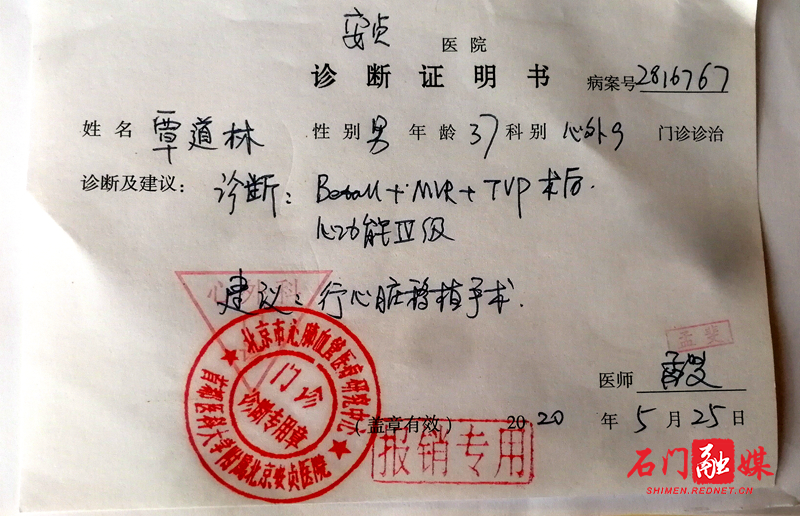 安贞 医院
诊断证明书
病案号 2816767
姓名 覃道林 性别 男 年龄 37 科别 心外9 门诊诊治
诊断及建议: 诊断: Bentall+MVR+TVP术后.
心功能IV级
建议: 行心脏移植手术.
心外科
北京市心肺血管医疗研究中心
首都医科大学附属北京安贞医院
门诊
诊断专用章
孟斐
医师
(盖章有效) 2020年5月25日
报销专用
石门融媒
SHIMEN.REDNET.CN